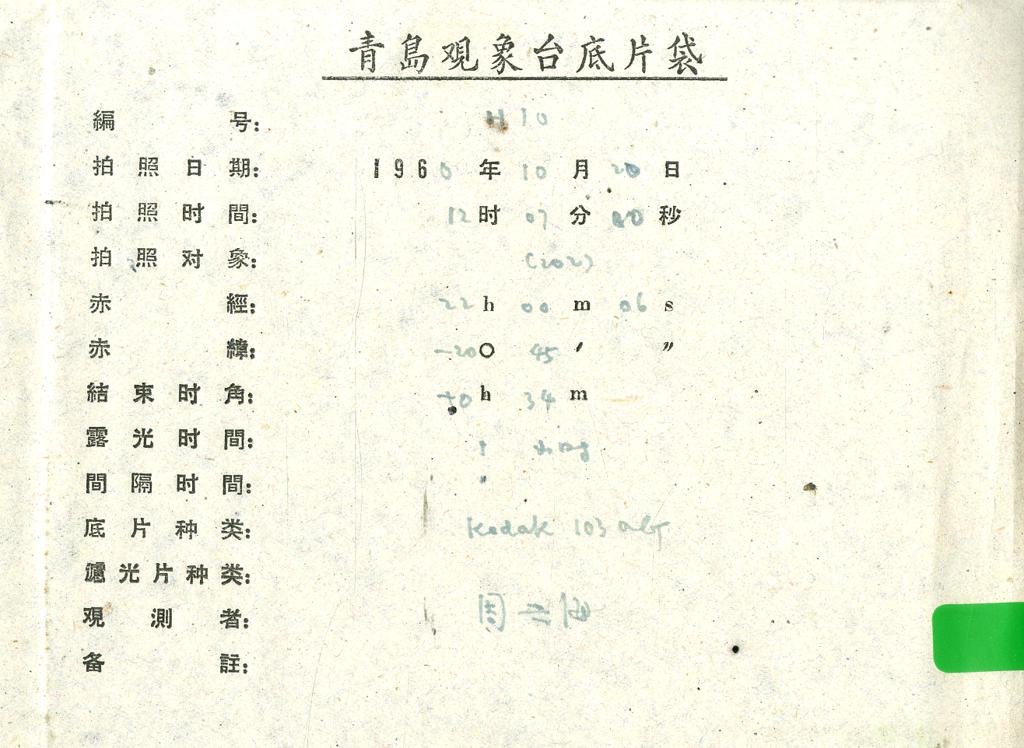 青島观象台底片袋
編号: H10
拍照日期: 1960年10月20日
拍照时間: 12时07分00秒
拍照对象: (202)
赤經: 22h 00m 06s
赤緯: -20° 45′ ″
結束时角: +0h 34m
露光时間:
間隔时間:
底片种类: Kodak 103
濾光片种类:
观測者: 周
备註: